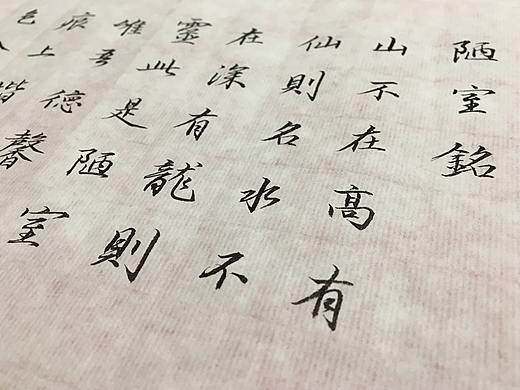 陋室銘
山不在高有
仙則名水不
在深有龍則
靈此是陋室
惟吾德馨
痕上階
色